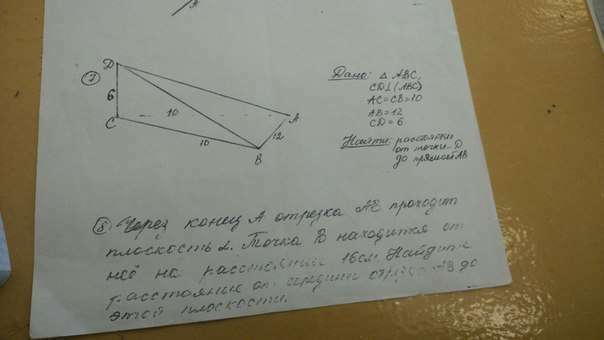 7
D
6
C
10
10
A
12
B
Дано: △ ABC,
CD⊥(ABC)
AC=CB=10
AB=12
CD=6
Найти: расстояние
от точки D
до прямой AB
8 Через конец А отрезка АВ проходит
плоскость α. Точка В находится от
неё на расстоянии 16см. Найдите
расстояние от середины отрезка АВ до
этой плоскости.